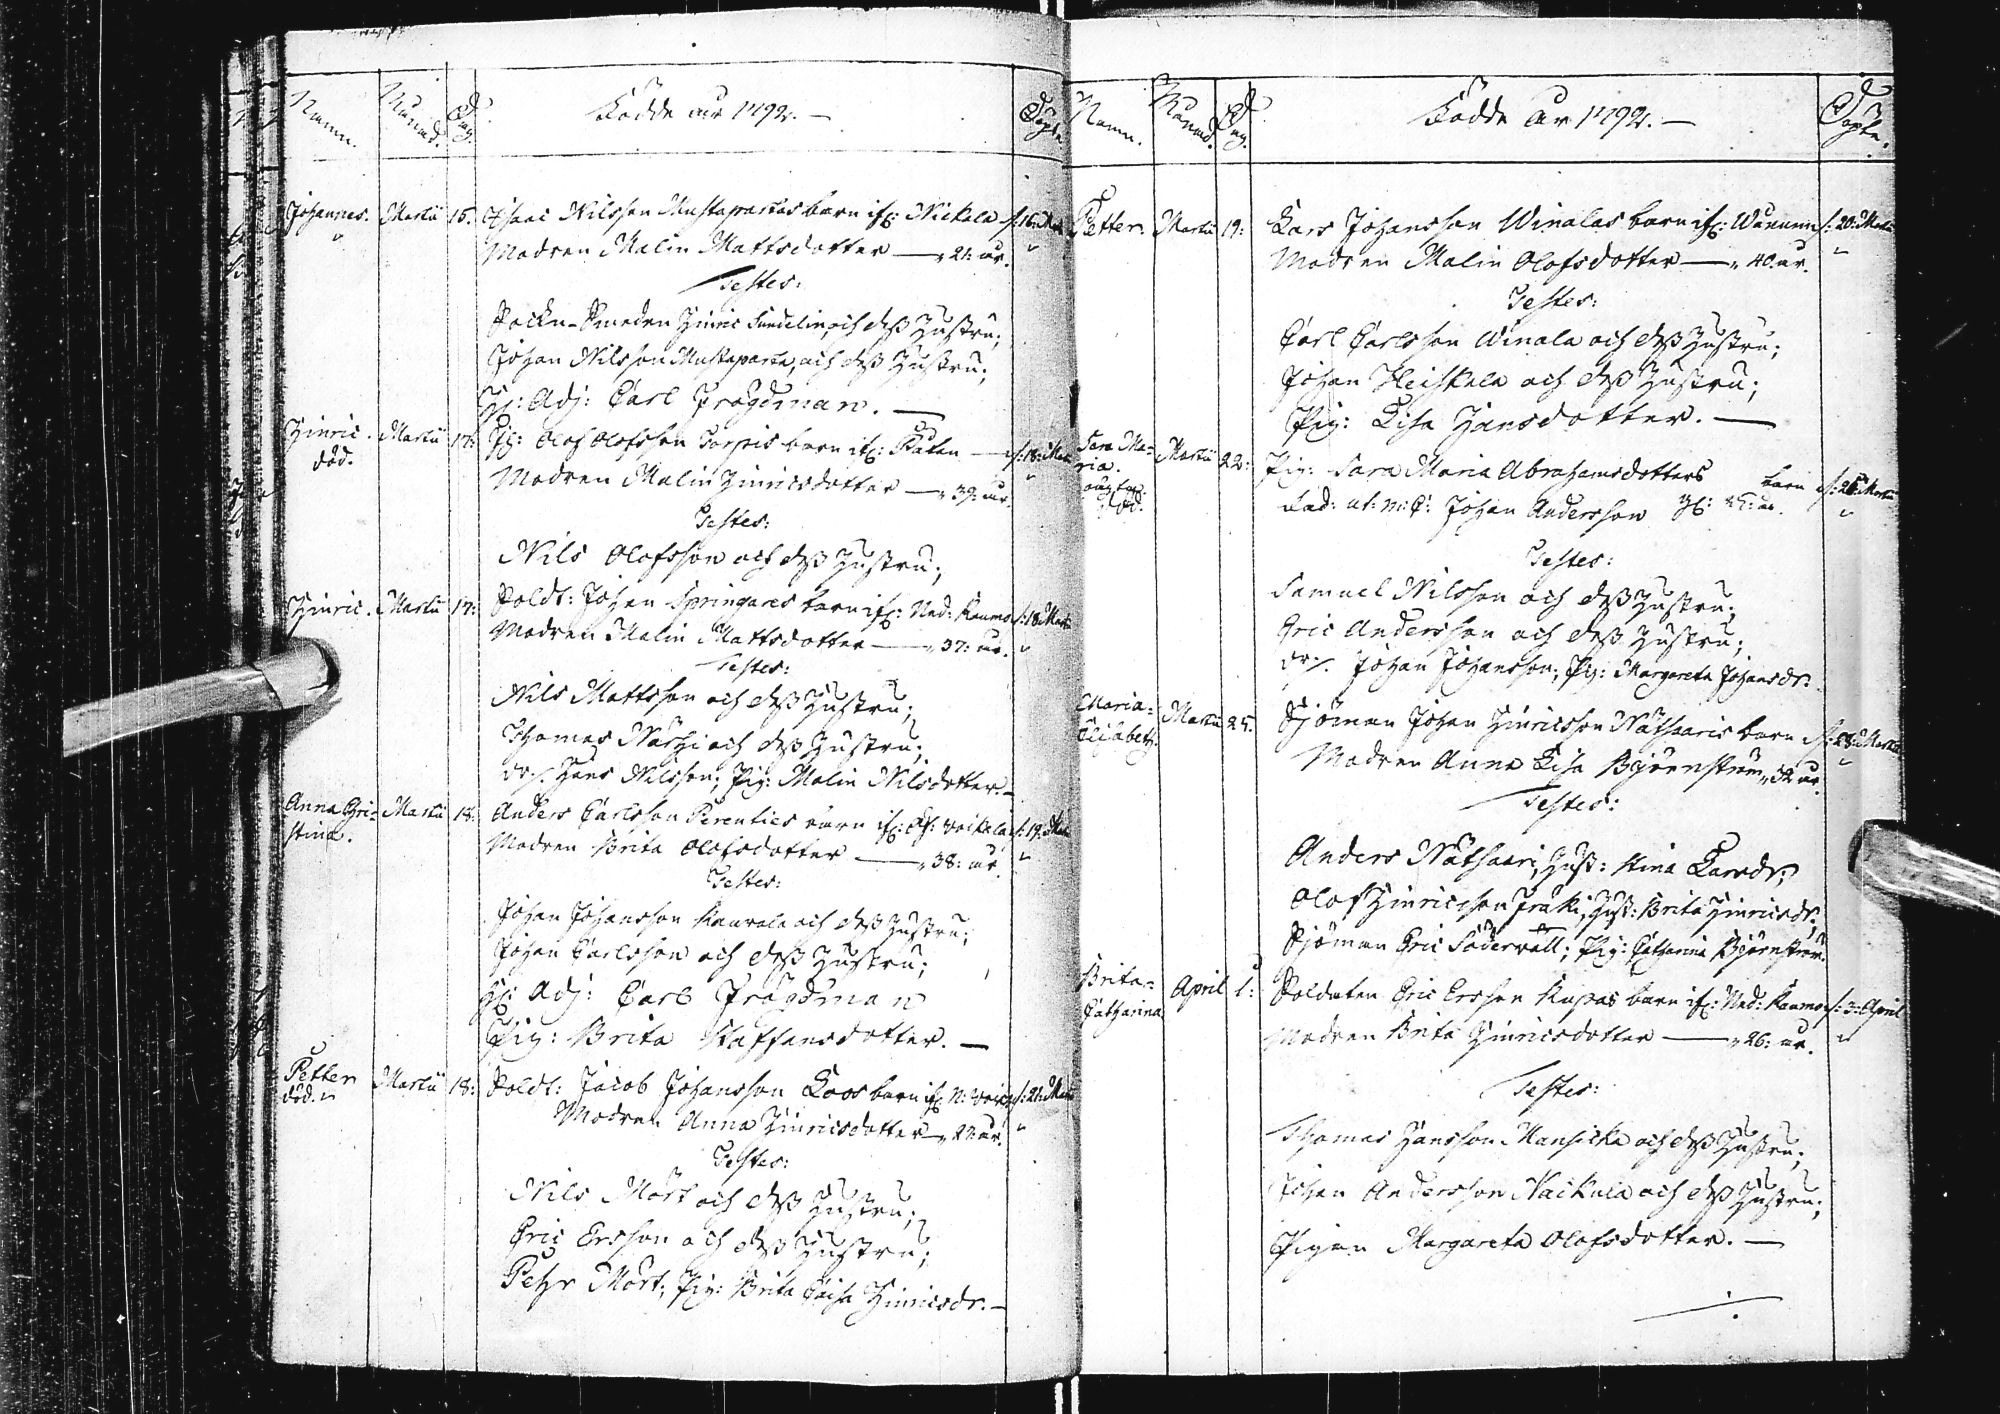 Namn. Månad. Dag. Födde År 1792. — Döpte.
Johannes. Martii 15. Isaac Nilsson Mustapartas barn if: Nickala d: 16: Martii
Modren Malin Mattsdotter — 21: år. "
Testes:
Sockn-Smeden Hinric Sundelin, och dess Hustru;
Johan Nilsson Mustaparta, och dess Hustru;
H: Adj: Carl Frogdman. —
Hinric. Martii 17: Olof Olofsson barn if: d: 18: Martii
död. Modren Malin Hinricsdotter — 39: år. "
Testes:
Nils Olofsson och dess Hustru;
Hinric. Martii 17: Soldt: Johan Springares barn if: Ned: Raumo d: 18: Martii
Modren Malin Mattsdotter — 37: år. "
Testes:
Nils Mattsson och dess Hustru;
Thomas Närhi och dess Hustru;
dr: Hans Nilsson; Pig: Malin Nilsdotter. —
Anna Chri- Martii 18: Anders Carlsson Perenties barn if: d: 19: Martii
stina. Modren Brita Olofsdotter — 38: år. "
Testes:
Johan Johansson Kaurala och dess Hustru;
Johan Carlsson och dess Hustru;
H: Adj: Carl Frogdman
Pig: Brita Staffansdotter. —
Petter Martii 18: Soldt: Jacob Johansson Loos barn if: N: d: 21: Martii
död. Modren Anna Hinricsdotter 22 år. "
Testes:
Nils Mört och dess Hustru;
Eric Ersson och dess Hustru;
Pehr Mört; Pig: Brita Caisa Hinricsdr. —
Namn. Månad. Dag. Födde År 1792. — Döpte.
Petter. Martii 19: Lars Johansson Winalas barn if: d: 20: Martii
Modren Malin Olofsdotter — 40. år. "
Testes:
Carl Carlsson Winala och dess Hustru;
Johan Heiskala och dess Hustru;
Pig: Lisa Hansdotter. —
Sara Ma- Martii 22: Pig: Sara Maria Abrahamsdotters barn d: Martii
ria. Johan Andersson år. "
oägta.
död.
Testes:
Samuel Nilsson och dess Hustru;
Eric Andersson och dess Hustru;
dr: Johan Johansson; Pig: Margareta Johansdr.
Maria- Martii 25. Sjöman Johan Hinricsson Nätsaaris barn d: 28: Martii
Elisabeth. Modren Anna Lisa Björnström 32 år. "
Testes:
Anders Nätsaari, Hust: Stina Larsdr;
Olof Hinricsson Iraki, Hust: Brita Hinricsdr;
Sjöman Eric Söderwall; Pig: Catharina Björnström.
Brita- April 1: Soldaten Eric Ersson Kupas barn if: Ned: Raumo d: 3: April
Catharina. Modren Brita Hinricsdotter — 26: år. "
Testes:
Thomas Hansson Mansicka och dess Hustru;
Johan Andersson Nackula och dess Hustru;
Pigan Margareta Olofsdotter. —